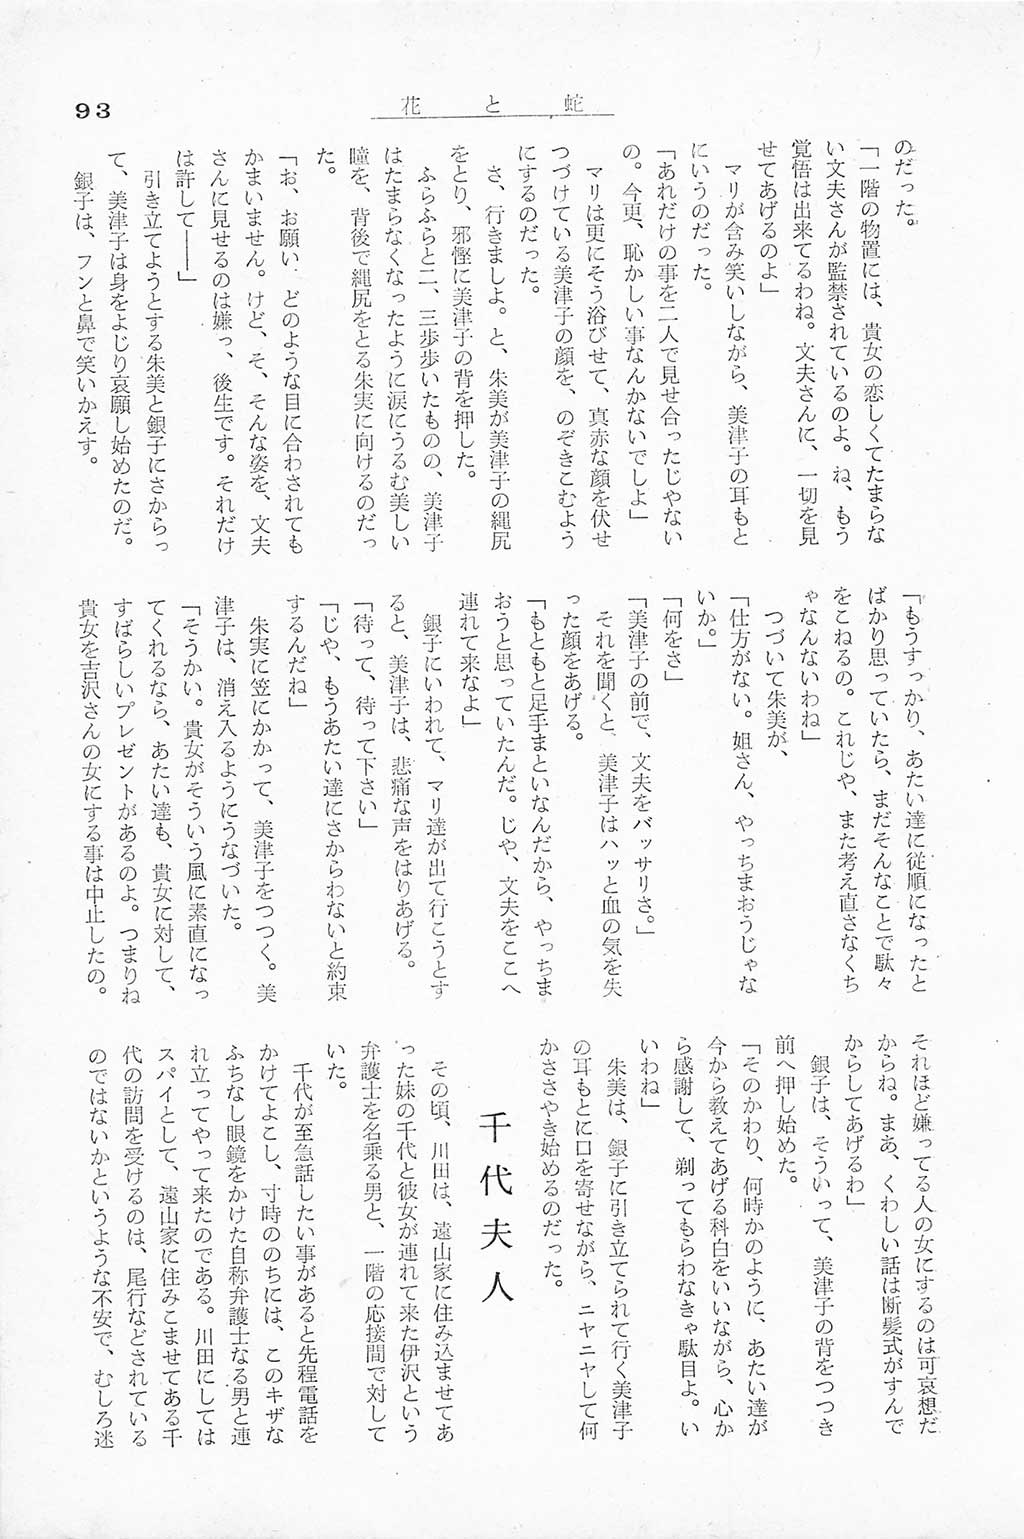 93
花と蛇
のだった。
「一階の物置には、貴女の恋しくてたまらな
い文夫さんが監禁されているのよ。ね、もう
覚悟は出来てるわね。文夫さんに、一切を見
せてあげるのよ」
マリが含み笑いしながら、美津子の耳もと
にいうのだった。
「あれだけの事を二人で見せ合ったじゃない
の。今更、恥かしい事なんかないでしよ」
マリは更にそう浴びせて、真赤な顔を伏せ
つづけている美津子の顔を、のぞきこむよう
にするのだった。
さ、行きましよ。と、朱美が美津子の縄尻
をとり、邪慳に美津子の背を押した。
ふらふらと二、三歩歩いたものの、美津子
はたまらなくなったように涙にうるむ美しい
瞳を、背後で縄尻をとる朱実に向けるのだっ
た。
「お、お願い、どのような目に合わされても
かまいません。けど、そ、そんな姿を、文夫
さんに見せるのは嫌っ、後生です。それだけ
は許して――」
引き立てようとする朱美と銀子にさからっ
て、美津子は身をよじり哀願し始めたのだ。
銀子は、フンと鼻で笑いかえす。
「もうすっかり、あたい達に従順になったと
ばかり思っていたら、まだそんなことで駄々
をこねるの。これじや、また考え直さなくち
ゃなんないわね」
つづいて朱美が、
「仕方がない。姐さん、やっちまおうじゃな
いか。」
「何をさ」
「美津子の前で、文夫をバッサリさ。」
それを聞くと、美津子はハッと血の気を失
った顔をあげる。
「もともと足手まといなんだから、やっちま
おうと思っていたんだ。じや、文夫をここへ
連れて来なよ」
銀子にいわれて、マリ達が出て行こうとす
ると、美津子は、悲痛な声をはりあげる。
「待って、待って下さい」
「じや、もうあたい達にさからわないと約束
するんだね」
朱実に笠にかかって、美津子をつつく。美
津子は、消え入るようにうなづいた。
「そうかい。貴女がそういう風に素直になっ
てくれるなら、あたい達も、貴女に対して、
すばらしいプレゼントがあるのよ。つまりね
貴女を吉沢さんの女にする事は中止したの。
それほど嫌ってる人の女にするのは可哀想だ
からね。まあ、くわしい話は断髪式がすんで
からしてあげるわ」
銀子は、そういって、美津子の背をつつき
前へ押し始めた。
「そのかわり、何時かのように、あたい達が
今から教えてあげる科白をいいながら、心か
ら感謝して、剃ってもらわなきゃ駄目よ。い
いわね」
朱美は、銀子に引き立てられて行く美津子
の耳もとに口を寄せながら、ニヤニヤして何
かささやき始めるのだった。
千代夫人
その頃、川田は、遠山家に住み込ませてあ
った妹の千代と彼女が連れて来た伊沢という
弁護士を名乗る男と、一階の応接間で対して
いた。
千代が至急話したい事があると先程電話を
かけてよこし、寸時ののちには、このキザな
ふちなし眼鏡をかけた自称弁護士なる男と連
れ立ってやって来たのである。川田にしては
スパイとして、遠山家に住みこませてある千
代の訪問を受けるのは、尾行などされている
のではないかというような不安で、むしろ迷